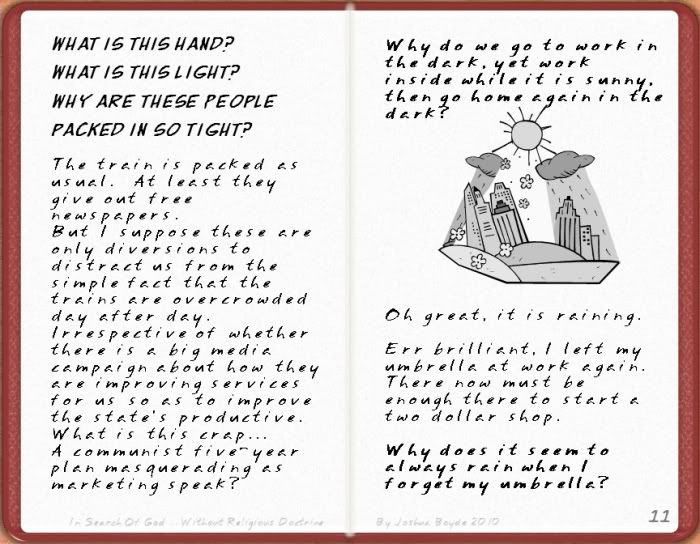 WHAT IS THIS HAND?
WHAT IS THIS LIGHT?
WHY ARE THESE PEOPLE
PACKED IN SO TIGHT?
The train is packed as
usual. At least they
give out free
newspapers.
But I suppose these are
only diversions to
distract us from the
simple fact that the
trains are overcrowded
day after day.
Irrespective of whether
there is a big media
campaign about how they
are improving services
for us so as to improve
the state's productive.
What is this crap...
A communist five-year
plan masquerading as
marketing speak?
In Search Of God ...Without Religious Doctrine
Why do we go to work in
the dark, yet work
inside while it is sunny,
then go home again in the
dark?
Oh great, it is raining.
Err brilliant, I left my
umbrella at work again.
There now must be
enough there to start a
two dollar shop.
Why does it seem to
always rain when I
forget my umbrella?
By Joshua Boyde 2010
11